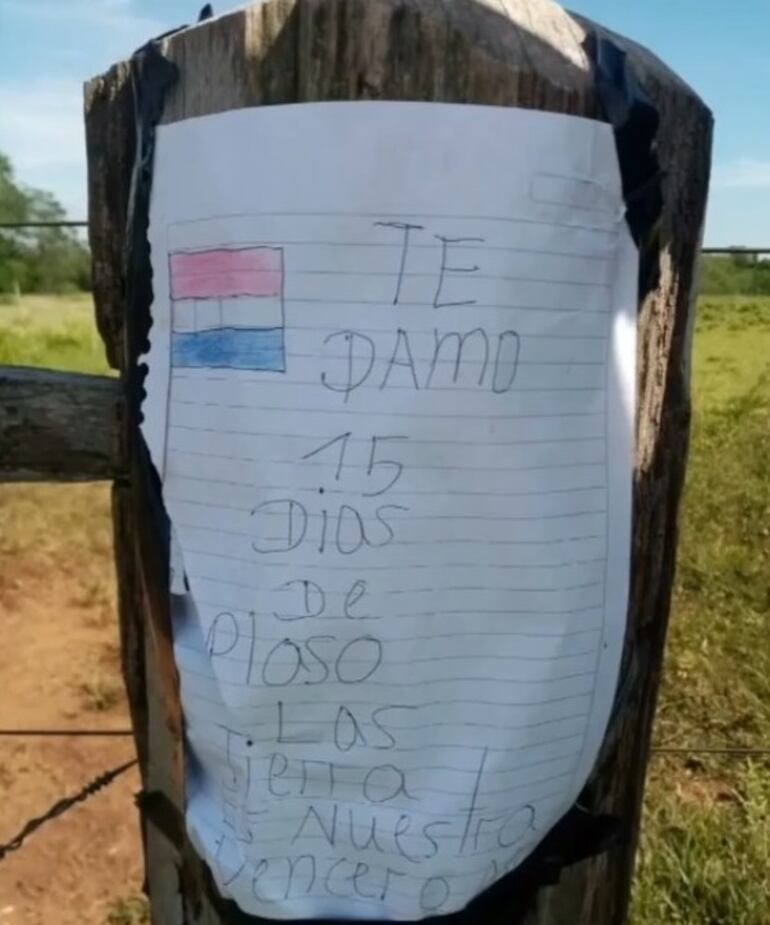 TE
DAMO
15
Dias
De
PlOSO
LAS
Tierra
ES NuEstra
Vencer o